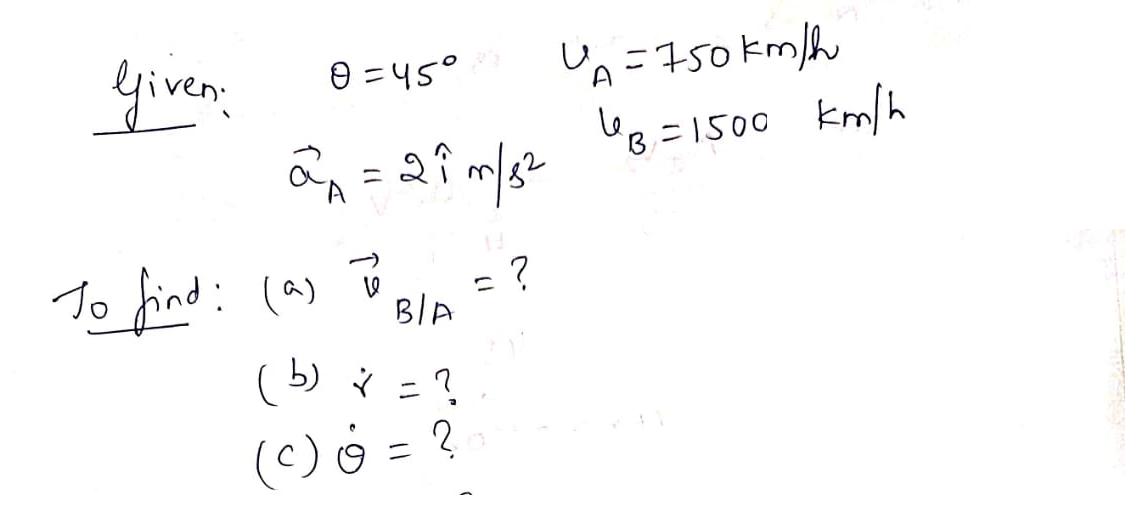 Given: θ = 45° v_A = 750 km/h
v_B = 1500 km/h
\vec{a}_A = 2î m/s²
To find: (a) \vec{v}_{B/A} = ?
(b) ṙ = ?
(c) θ̇ = ?